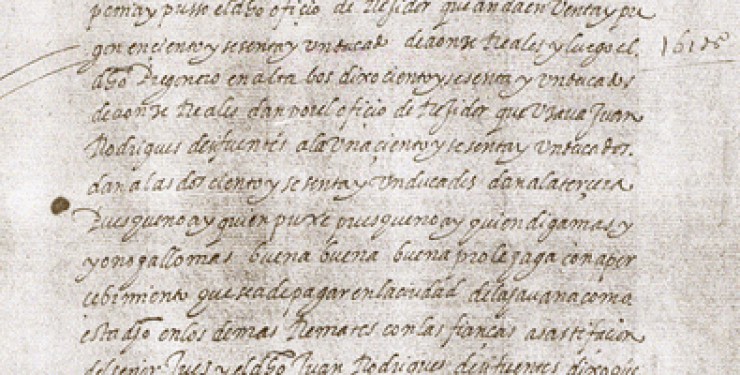 pería y pusso el dho oficio de Regidor que anda en Venta y pre
gon en ciento y sesenta y un ducados de aonse Reales y luego el
dho Pregonero en alta bos dixo ciento y sesenta y un ducados
de aonse Reales dan por el oficio de Regidor que Usava Juan
Rodrigues de sifuentes a la Una ciento y sesenta y un ducados.
dan a las dos ciento y sesenta y un ducados dan a la tercera
Pues que no ay quien puxe pues que no ay quien diga mas y
y o no gallo mas buena buena buena pro le haga con aper
cebimiento que se a de pagar en la ciudad de la Javana como
esta dho en los demas Remates con las fianças a satisfacion
del señor Jues y el dho Juan Rodrigues de sifuentes dixo que